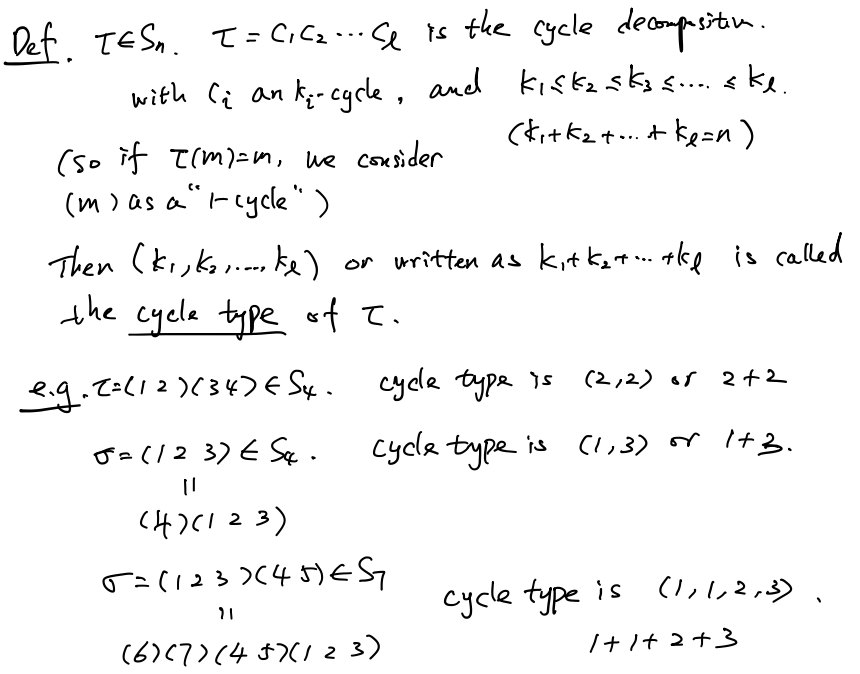 Def. τ∈Sₙ. τ = C₁C₂⋯Cℓ is the cycle decomposition.
with Cᵢ an kᵢ-cycle, and k₁≤k₂≤k₃≤....≤kℓ.
(k₁+k₂+...+kℓ=n)
(so if τ(m)=m, we consider
(m) as a "1-cycle")
Then (k₁,k₂,...,kℓ) or written as k₁+k₂+⋯+kℓ is called
the cycle type of τ.
e.g. τ=(1 2)(3 4)∈S₄. cycle type is (2,2) or 2+2
σ=(1 2 3)∈S₄. cycle type is (1,3) or 1+3.
||
(4)(1 2 3)
σ=(1 2 3)(4 5)∈S₇ cycle type is (1,1,2,3).
||
(6)(7)(4 5)(1 2 3) 1+1+2+3